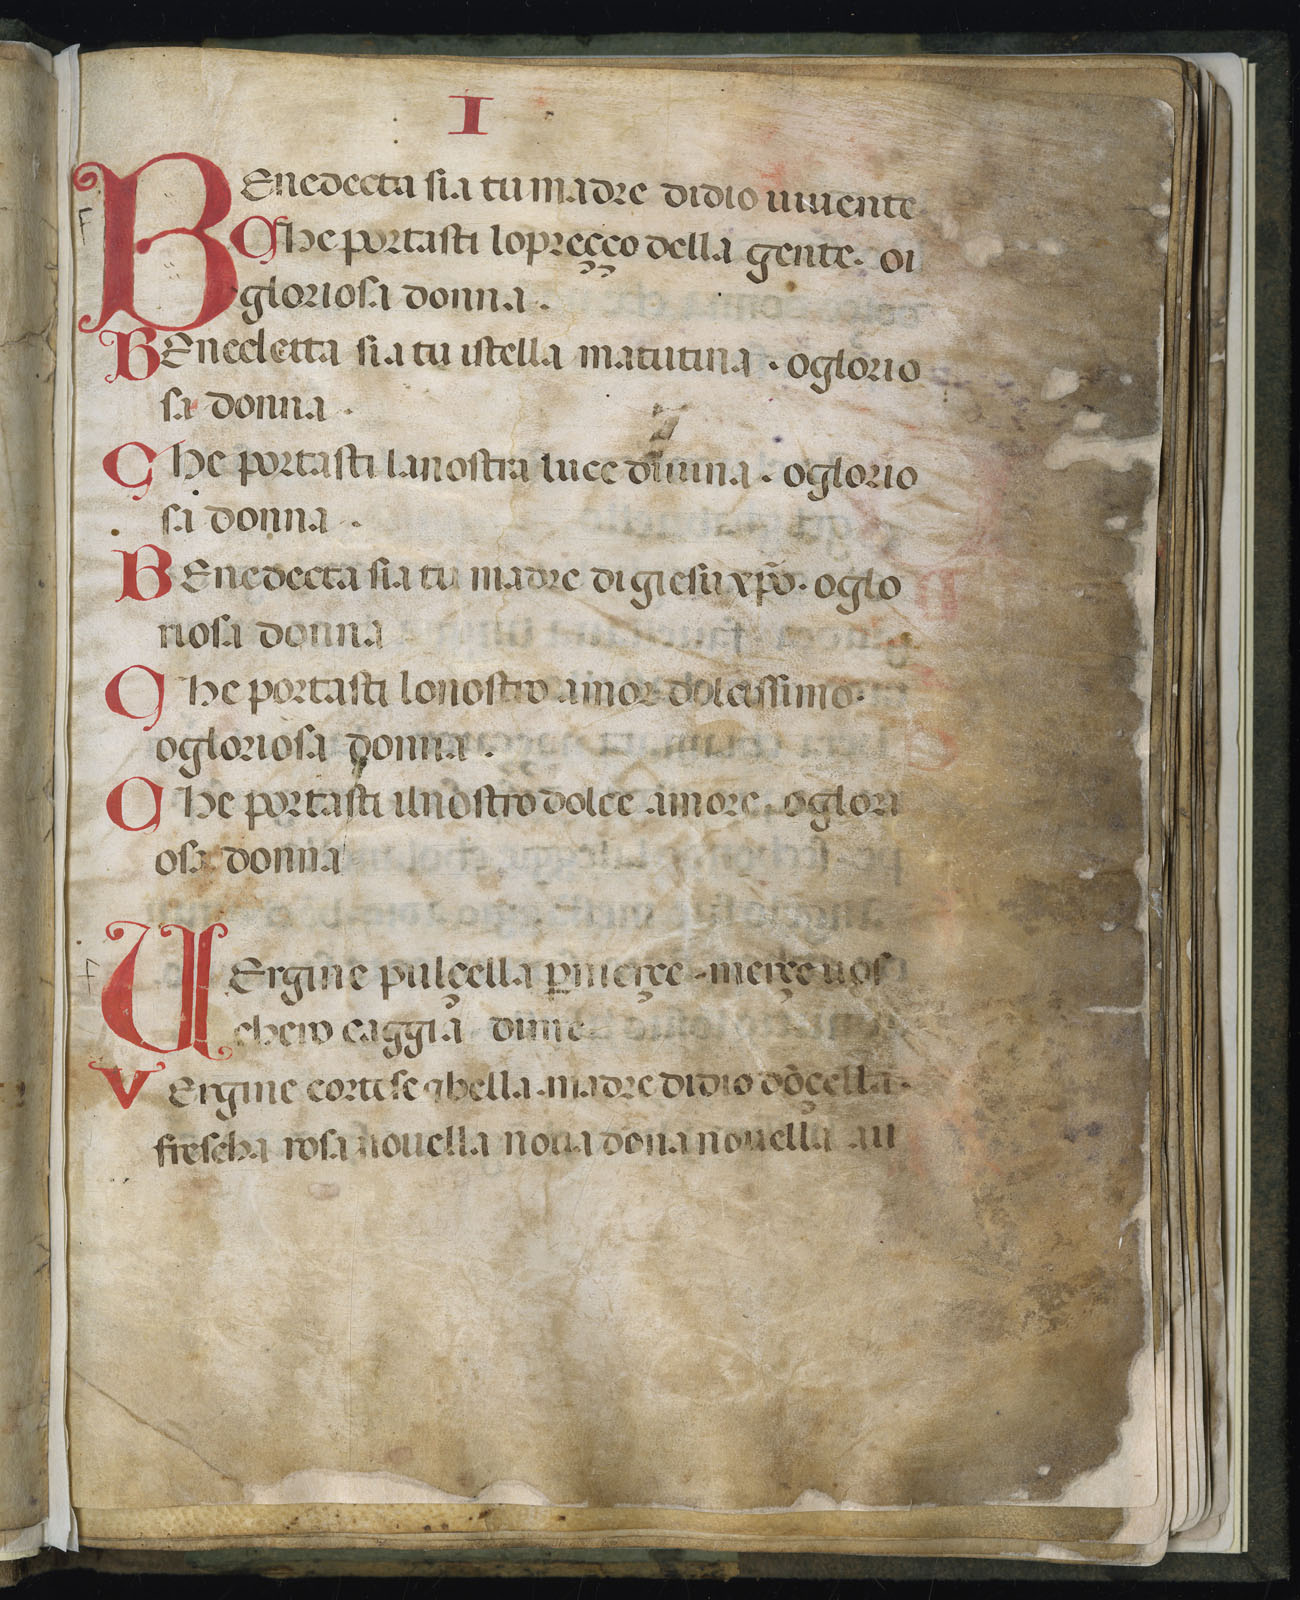 I
BEnedecta sia tu madre didio uiuente
Che portasti lopreççо della gente. oi
gloriosa donna.
BEnedetta sia tu istella matutina. oglorio
sa donna.
Che portasti lanostra luce diuina. oglorio
sa donna.
BEnedecta sia tu madre digiesu xp̄o. oglo
riosa donna
Che portasti lonostro amor dolcissimo.
ogloriosa donna.
Che portasti ilnostro dolce amore. oglori
osa donna
F
UErgine pulçella p̱merçe. merçe uos
chero caggia dime
VErgine cortese bella. madre didio dōçella.
frescha rosa nouella noua dona nouella au
F